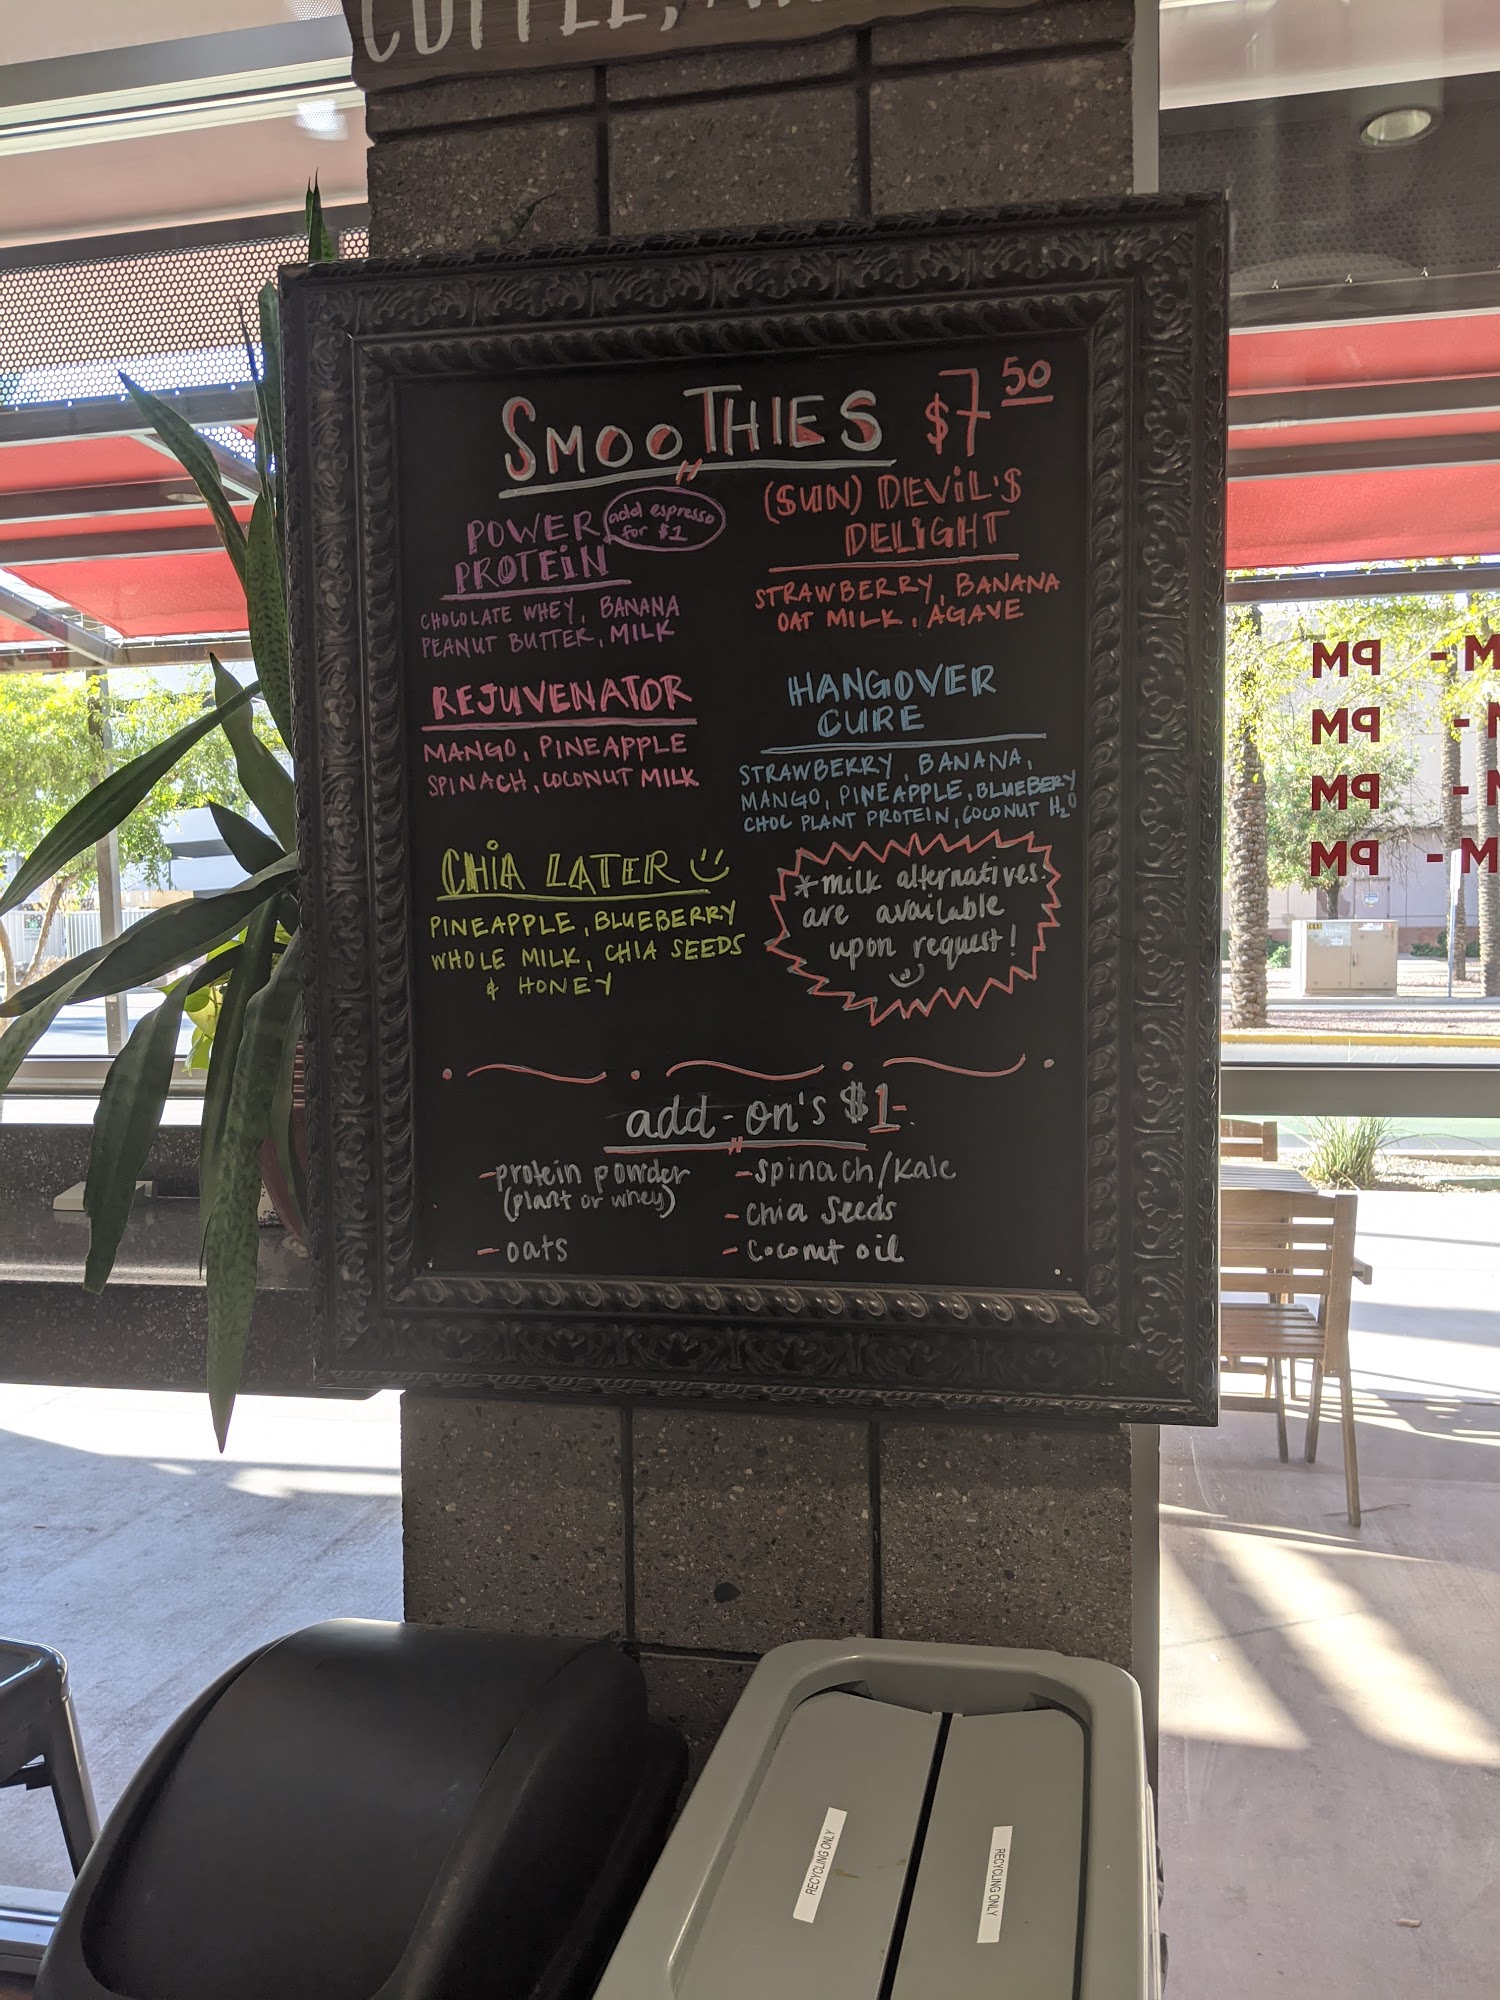 COFFEE,
SMOOTHIES $7 50
POWER
PROTEIN
add espresso
for $1
CHOCOLATE WHEY, BANANA
PEANUT BUTTER, MILK
(SUN) DEVIL'S
DELIGHT
STRAWBERRY, BANANA
OAT MILK, AGAVE
REJUVENATOR
MANGO, PINEAPPLE
SPINACH, COCONUT MILK
HANGOVER
CURE
STRAWBERRY, BANANA,
MANGO, PINEAPPLE, BLUEBERY
CHOC PLANT PROTEIN, COCONUT H₂O
CHIA LATER
PINEAPPLE, BLUEBERRY
WHOLE MILK, CHIA SEEDS
& HONEY
*milk alternatives
are available
upon request!
add-on's $1-
-protein powder
(plant or whey)
-oats
-spinach/kale
-chia seeds
-coconut oil
PM
PM
PM
PM
RECYCLING ONLY
RECYCLING ONLY